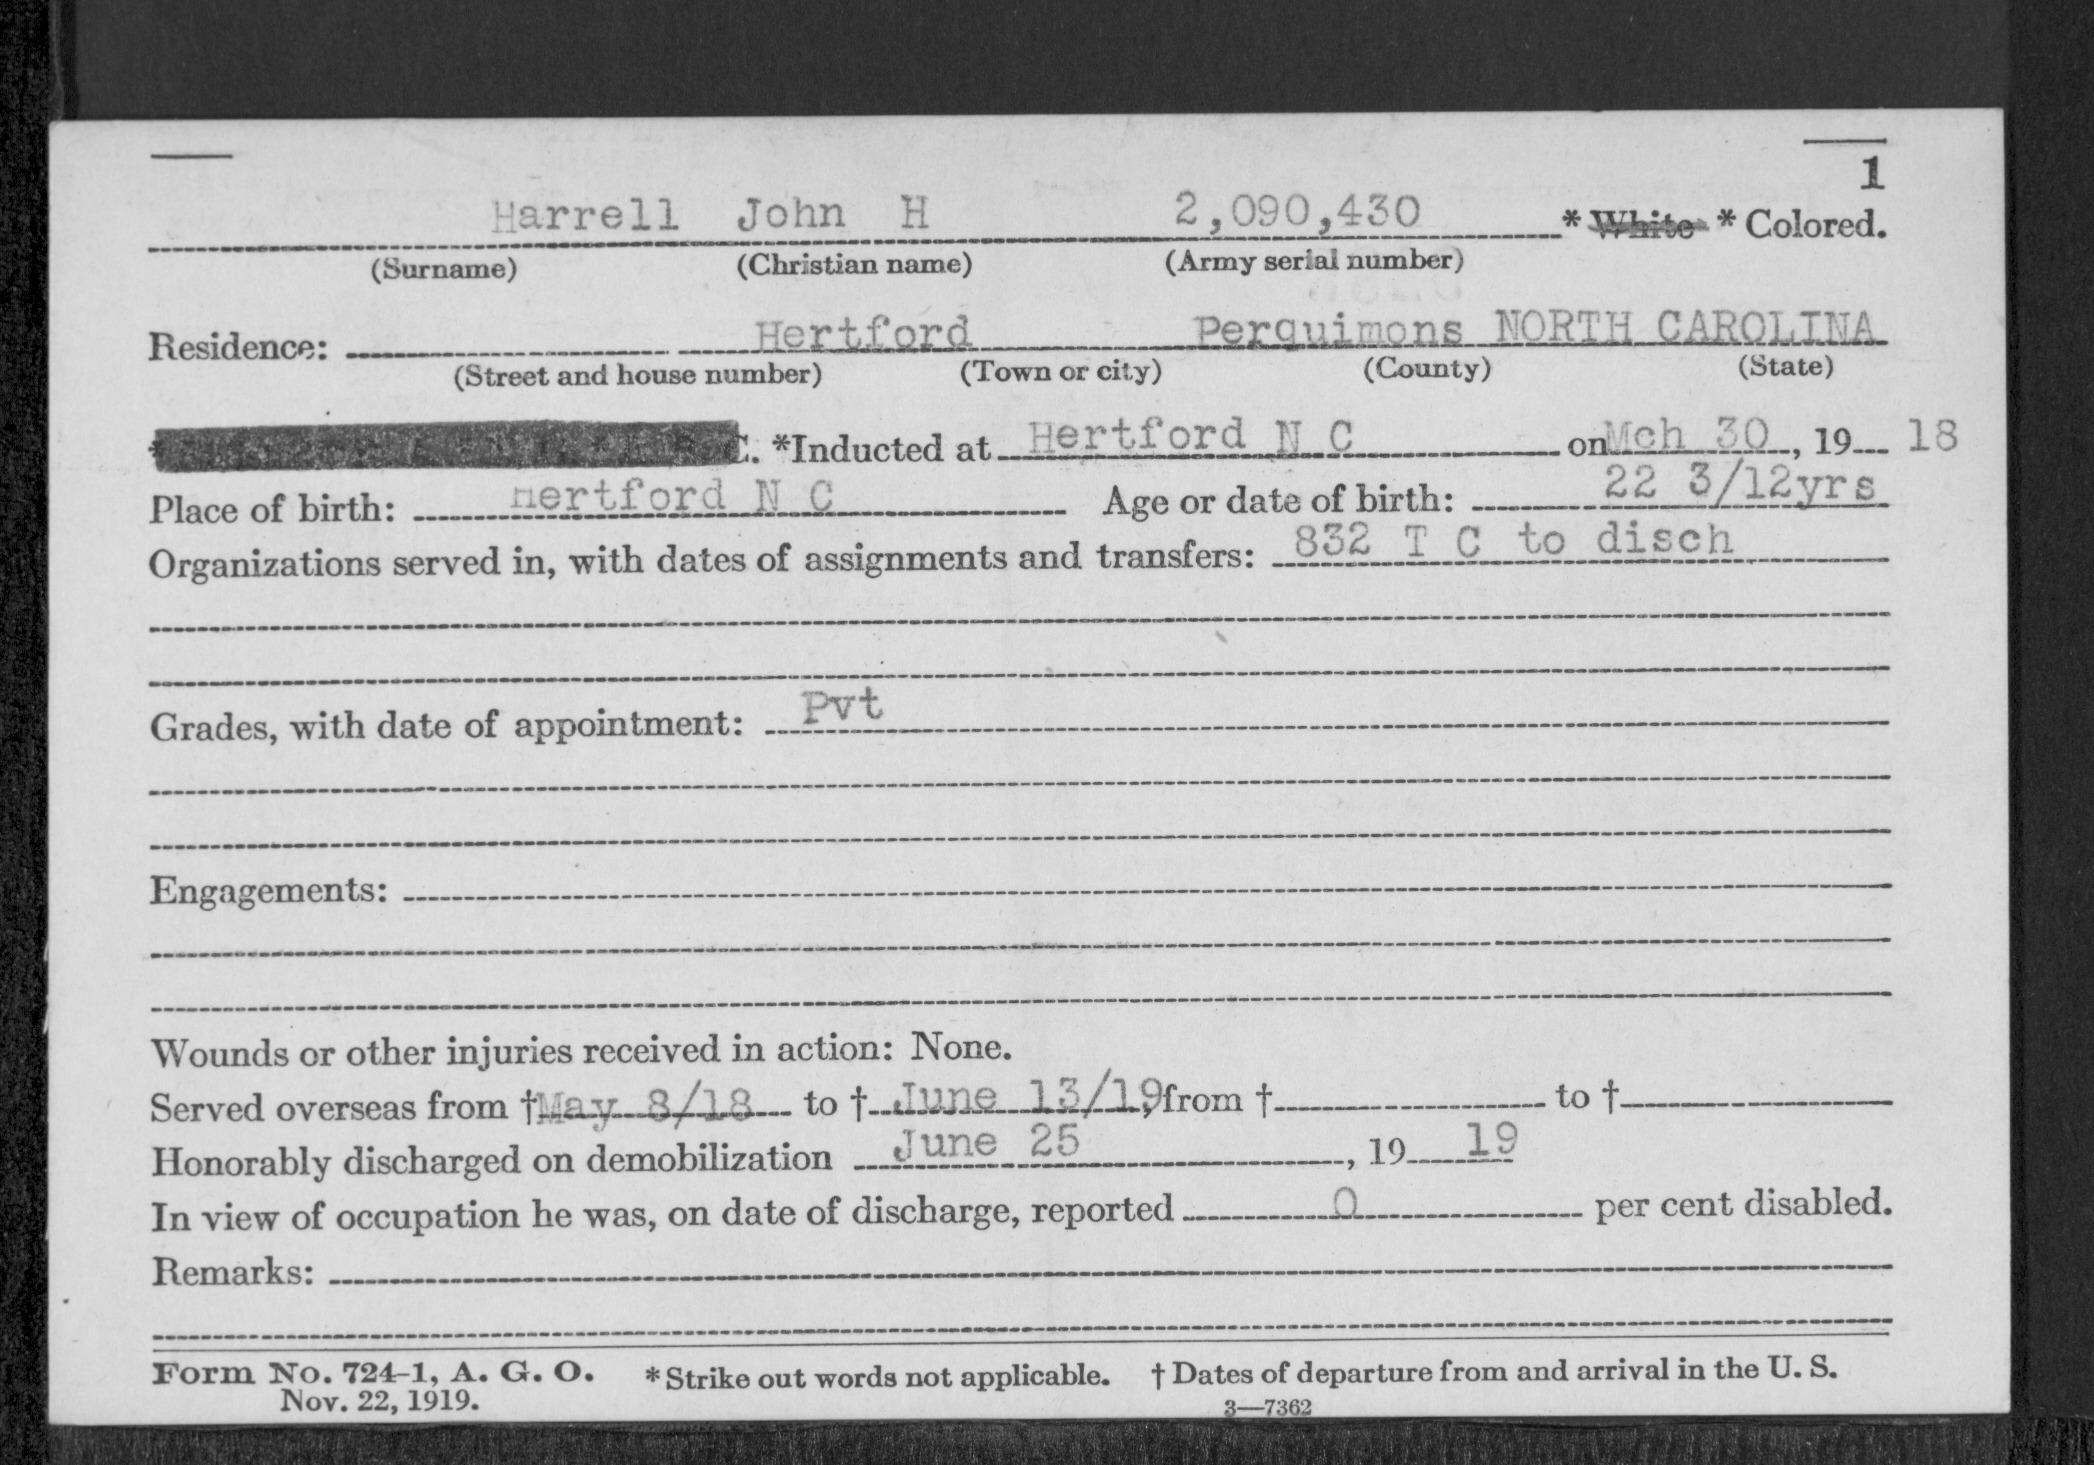 1
Harrell John H 2,090,430 * White * Colored.
(Surname) (Christian name) (Army serial number)
Residence: Hertford Perquimons NORTH CAROLINA
(Street and house number) (Town or city) (County) (State)
C. *Inducted at Hertford N C on Mch 30, 19 18
Place of birth: Hertford N C Age or date of birth: 22 3/12yrs
Organizations served in, with dates of assignments and transfers: 832 T C to disch
Grades, with date of appointment: Pvt
Engagements:
Wounds or other injuries received in action: None.
Served overseas from †May 8/18 to † June 13/19, from † to †
Honorably discharged on demobilization June 25, 19 19
In view of occupation he was, on date of discharge, reported 0 per cent disabled.
Remarks:
Form No. 724-1, A. G. O. *Strike out words not applicable. † Dates of departure from and arrival in the U. S.
Nov. 22, 1919. 3—7362